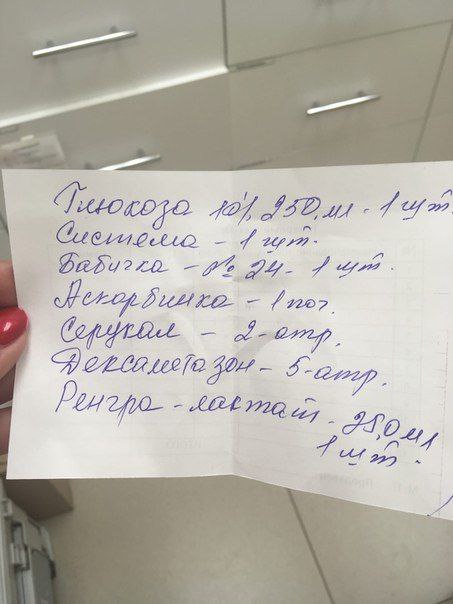 Глюкоза 10% 250,мл - 1 шт.
Система - 1 шт.
Бабичка - № 24 - 1 шт.
Аскорбинка - 1 поч.
Серукал - 2 - атр.
Дексаметазон - 5 - атр.
Ренгра - лактат - 250 мл
1 шт.